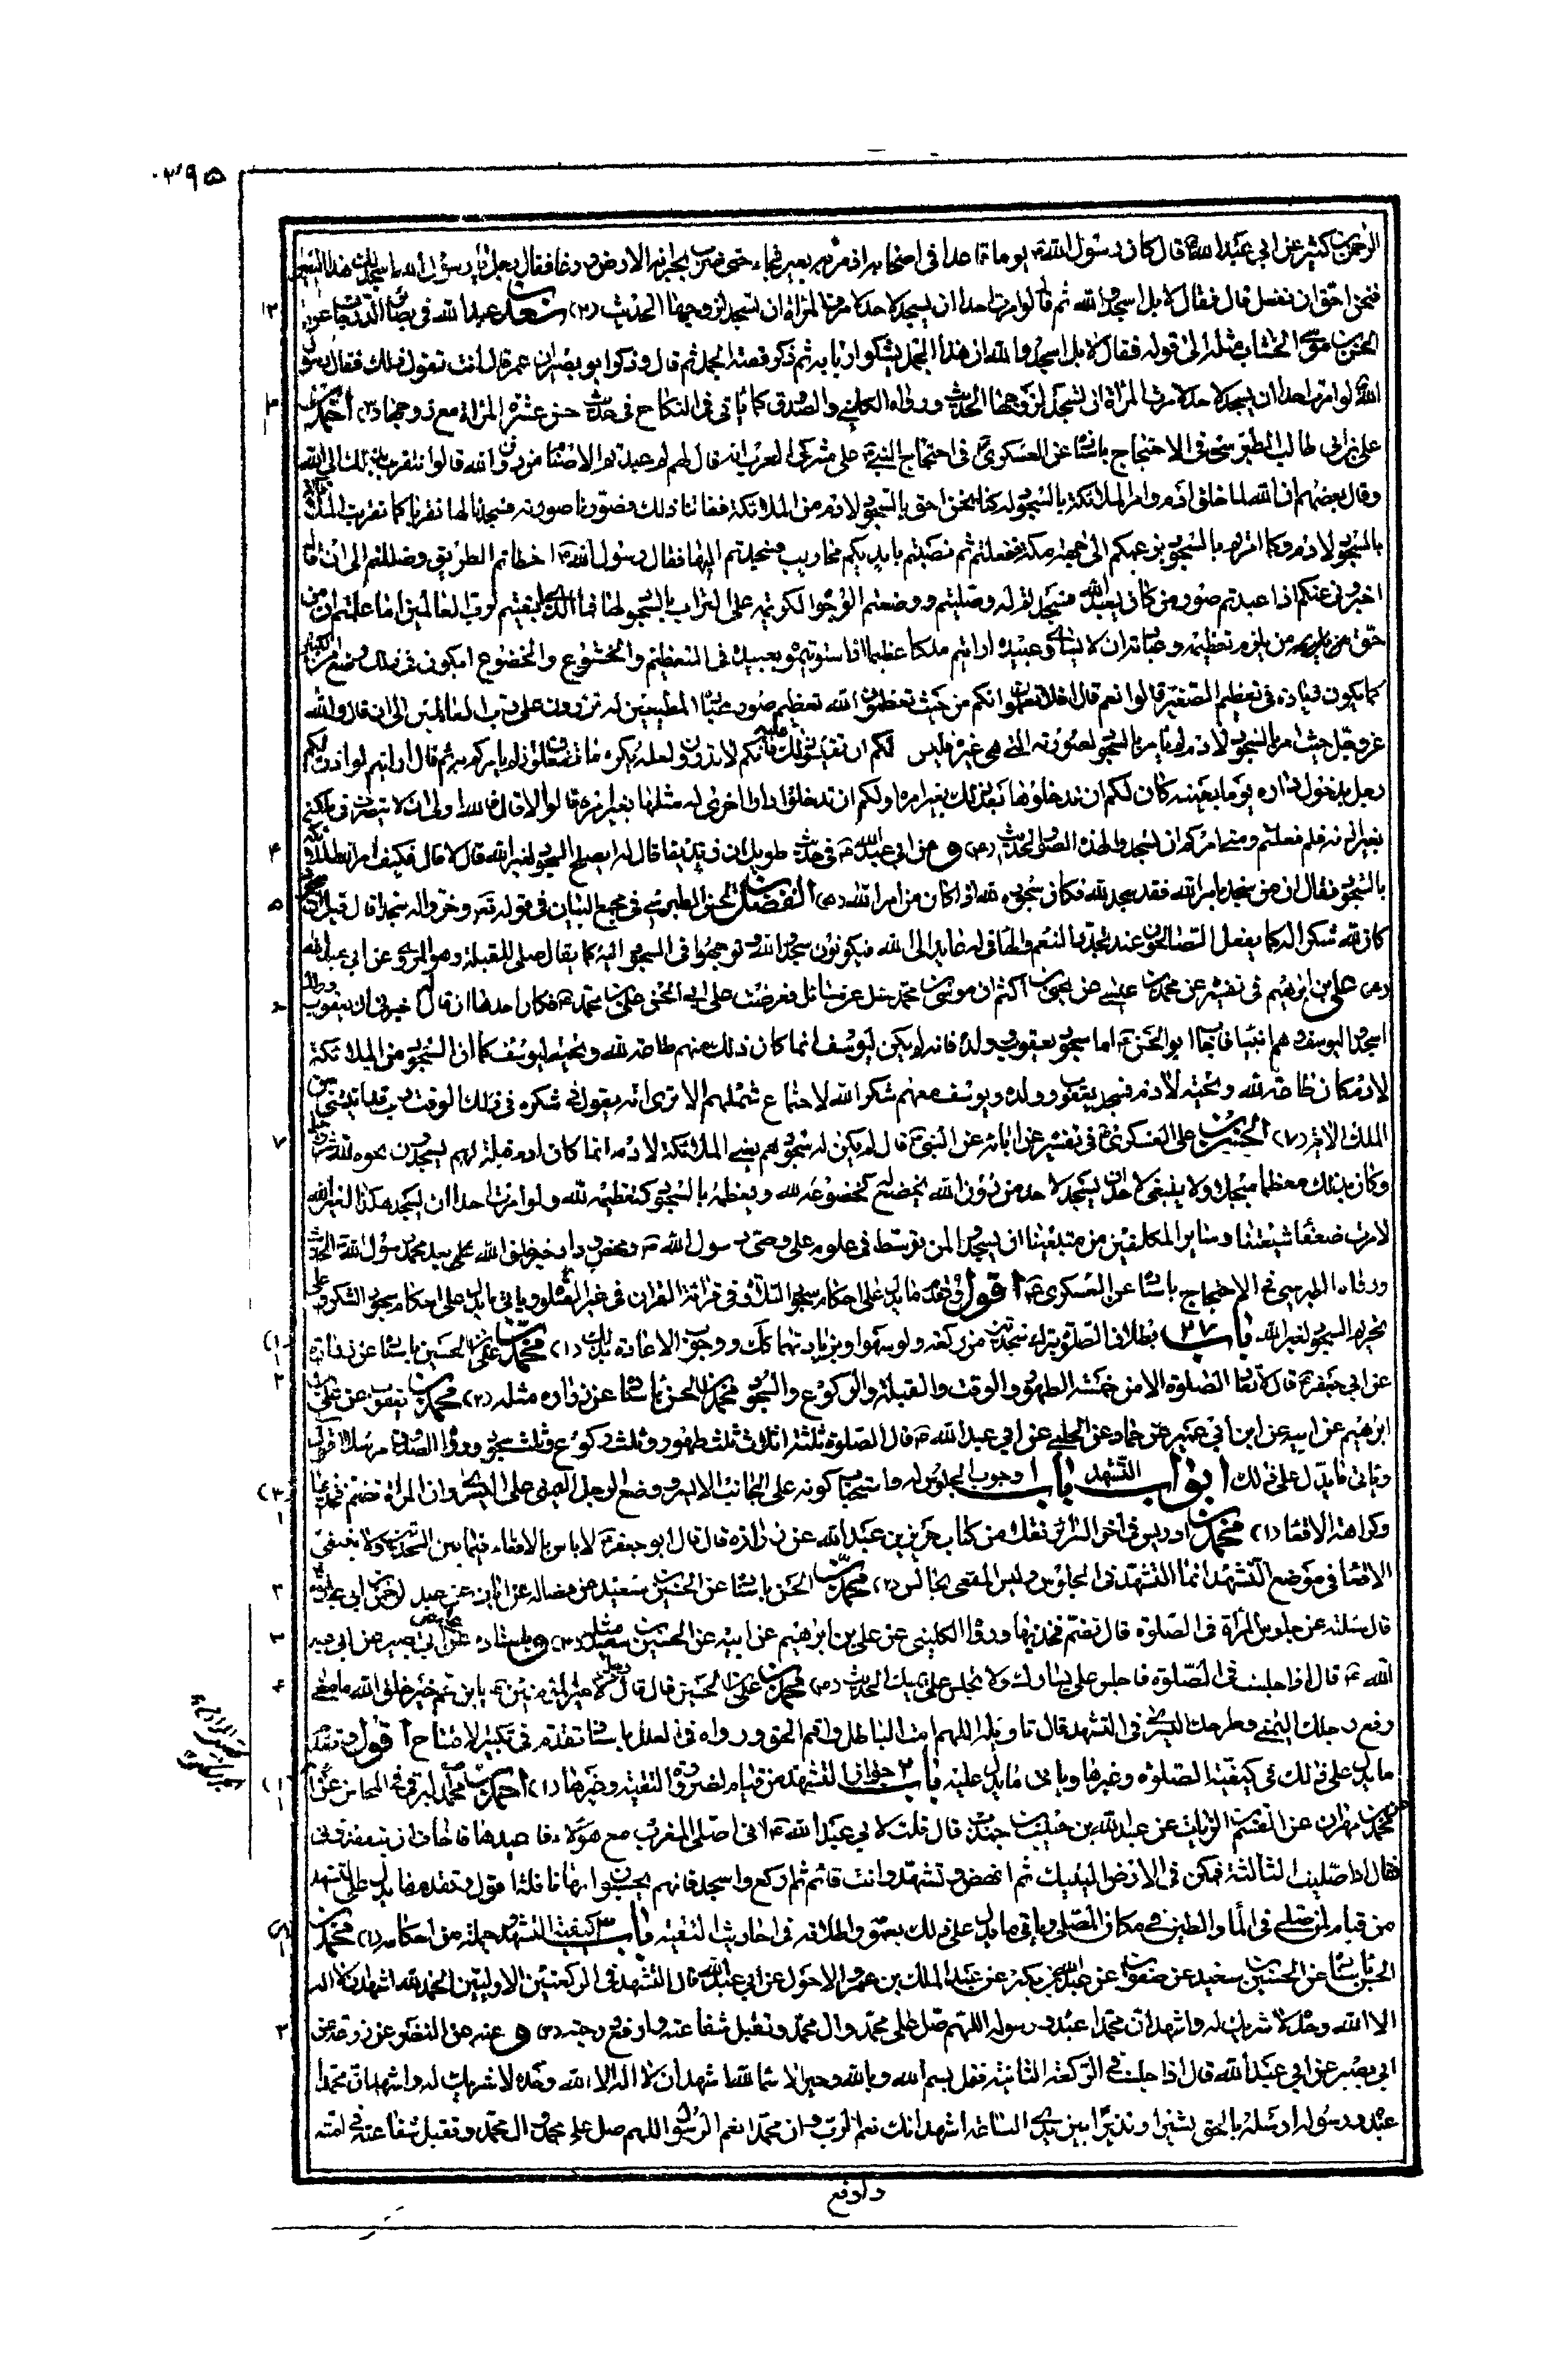 ۳۹۵
الرحمن بن كثير عن ابي عبد الله ع قال كان رسول الله ص يوما قاعدا في اصحابه اذ مر به بعير فجاء حتى ضرب بجرانه الارض ورغا فقال رجل يا رسول الله اسجد لك هذا البعير
فنحن احق ان نفعل قال فقال لا بل اسجدوا لله ثم قال لو امرت احدا ان يسجد لاحد لامرت المرأة ان تسجد لزوجها الحديث (٢) سعد بن عبد الله في بصائر الدرجات عن
الحسن بن موسى الخشاب مثله الى قوله فقال لا بل اسجدوا لله ان هذا الجمل يشكو اربابه ثم ذكر قصة الجمل ثم قال وذكر ابو بصير ان عمر قال انت تقول ذلك فقال رسول
الله ص لو امرت احدا ان يسجد لاحد لامرت المرأة ان تسجد لزوجها الحديث ورواه الكليني والصدوق كما يأتي في النكاح في حديث حسن عشرة المرأة مع زوجها (٣) احمد بن
علي بن ابي طالب الطبرسي في الاحتجاج باسناده عن العسكري ع في احتجاج النبي ص على مشركي العرب انه قال لهم لم عبدتم الاصنام من دون الله قالوا نتقرب بذلك الى الله
وقال بعضهم ان الله لما خلق آدم وامر الملائكة بالسجود له كنا نحن احق بالسجود لآدم من الملائكة ففاتنا ذلك فصورنا صورته فسجدنا لها تقربا كما تقربت الملائكة
بالسجود لآدم وكما امرتم بالسجود بزعمكم الى جهة مكة ففعلتم ثم نصبتم بايديكم محاريب فسجدتم اليها فقال رسول الله ص اخطأتم الطريق وضللتم الى ان قال
اخبروني عنكم اذا عبدتم صور من كان يعبد الله فسجدتم له وصليتم ووضعتم الوجوه الكريمة على التراب بالسجود لها فما الذي ابقيتم لرب العالمين اما علمتم ان من
حق من يلزم تعظيمه وعبادته ان لا يساوى عبيده ارايتم ملكا عظيما اذا سويتموه بعبيده في التعظيم والخشوع والخضوع ايكون في ذلك وضع من الكبير
كما يكون زيادة في تعظيم الصغير قالوا نعم قال افلا تعلمون انكم من حيث تعظمون الله تعظيم صور عباده المطيعين له تزرون على رب العالمين الى ان قال والله
عز وجل حيث امر بالسجود لآدم لم يأمر بالسجود لصورته التي هي غيره فليس لكم ان تقيسوا ذلك عليه فانكم لا تدرون لعله يكره ما تفعلون اذ لم يأمركم به ثم قال ارايتم لو اذن لكم
رجل بدخول داره يوما بعينه كان لكم ان تدخلوها بعد ذلك بغير امره او لكم ان تدخلوا دارا اخرى له مثلها بغير امره قالوا لا قال فالله اولى ان لا يتصرف في ملكه
بغير اذنه فلم فعلتم ومتى امركم ان تسجدوا لهذه الصور الحديث (٤) وعن ابي عبد الله ع في حديث طويل ان زنديقا قال له ايصلح السجود لغير الله قال لا قال فكيف امر الله الملائكة
بالسجود فقال ان من سجد بامر الله فقد سجد لله فكان سجوده لله اذا كان من امر الله (٥) الفضل بن الحسن الطبرسي في مجمع البيان في قوله تعالى وخروا له سجدا قال قيل ان السجود
كان لله شكرا له كما يفعل الصالحون عند تجدد النعم والهاء في له عائد الى الله فيكونون سجدوا لله وتوجهوا في السجود اليه كما يقال صلى للقبلة وهو المروي عن ابي عبد الله
(٦) علي بن ابراهيم في تفسيره عن محمد بن عيسى عن يحيى بن اكثم ان موسى بن محمد سئل عن مسائل فعرضت على ابي الحسن علي بن محمد ع فكان احدها ان قال له اخبرني ان يعقوب وولده
اسجدوا ليوسف وهم انبياء فاجاب ابو الحسن ع اما سجود يعقوب وولده فانه لم يكن ليوسف انما كان ذلك منهم طاعة لله وتحية ليوسف كما ان السجود من الملائكة
لآدم كان طاعة لله وتحية لآدم فسجد يعقوب وولده ويوسف معهم شكرا لله لاجتماع شملهم الا ترى انه يقول في شكره في ذلك الوقت رب قد اتيتني من
الملك الآية (٧) الحسن بن علي العسكري ع في تفسيره عن آبائه عن النبي ص قال لم يكن له سجودهم يعني الملائكة لآدم انما كان آدم قبلة لهم يسجدون نحوه لله عز وجل
وكان بذلك معظما مبجلا ولا ينبغي لاحد ان يسجد لاحد من دون الله يخضع له كخضوعه لله ويعظمه بالسجود كتعظيمه لله ولو امرت احدا ان يسجد هكذا لغير الله
لامرت ضعفاء شيعتنا وسائر المكلفين من متبعينا ان يسجدوا لمن توسط في علوم علي وصي رسول الله ص ومحض وداد خير خلق الله علي بعد محمد رسول الله ص الحديث
ورواه الطبرسي في الاحتجاج باسناده عن العسكري ع اقول وتقدم ما يدل على احكام سجود التلاوة في قراءة القرآن في غير الصلوة ويأتي ما يدل على احكام سجود الشكر وعلى
تحريم السجود لغير الله باب ٢٧ بطلان الصلوة بترك سجدتين من ركعة ولو سهوا وبزيادتهما كذلك ووجوب الاعادة بذلك (١) محمد بن علي بن الحسين باسناده عن زرارة
عن ابي جعفر ع قال لا تعاد الصلوة الا من خمسة الطهور والوقت والقبلة والركوع والسجود محمد بن الحسن باسناده عن زرارة مثله (٢) محمد بن يعقوب عن علي بن
ابراهيم عن ابيه عن ابن ابي عمير عن حماد عن الحلبي عن ابي عبد الله ع قال الصلوة ثلثة اثلاث ثلث طهور وثلث ركوع وثلث سجود ورواه الصدوق مرسلا اقول
ويأتي ما يدل على ذلك ابواب التشهد باب ١ وجوب الجلوس له واستحباب كونه على الجانب الايسر ووضع الرجل اليمنى على اليسرى وان المرأة تضم فخذيها
وكراهة الاقعاء (١) محمد بن ادريس في آخر السرائر نقلا من كتاب حريز بن عبد الله عن زرارة قال قال ابو جعفر ع لا باس بالاقعاء فيما بين السجدتين ولا ينبغي
الاقعاء في موضع التشهد انما التشهد في الجلوس وليس المقعي بجالس (٢) محمد بن الحسن باسناده عن الحسين بن سعيد عن فضالة عن ابان عن عبد الرحمن بن ابي عبد الله
قال سئلته عن جلوس المرأة في الصلوة قال تضم فخذيها ورواه الكليني عن علي بن ابراهيم عن ابيه عن الحسين بن سعيد مثله (٣) وباسناده عن ابي بصير عن ابي عبد
الله ع قال اذا جلست في الصلوة فاجلس على يسارك ولا تجلس على يمينك الحديث (٤) محمد بن علي بن الحسين قال قال رجل لامير المؤمنين ع يا ابن عم خير خلق الله ما معنى
رفع رجلك اليمنى وطرحك اليسرى في التشهد قال تأويله اللهم امت الباطل واقم الحق ورواه في العلل باسناد تقدم في تكبير الافتتاح اقول وتقدم
ما يدل على ذلك في كيفية الصلوة وغيرها ويأتي ما يدل عليه باب ٢ جواز التشهد من قيام لضرورة التقية وغيرها (١) احمد بن محمد البرقي في المحاسن عن ابيه
عن محمد بن مهران عن القسم الزيات عن عبد الله بن حبيب بن جندب قال قلت لابي عبد الله ع اني اصلي المغرب مع هؤلاء فاعيدها فاخاف ان يتفقدوني
فقال اذا صليت الثالثة فمكن في الارض اليتيك ثم انهض وتشهد وانت قائم ثم اركع واسجد فانهم يحسبون انها نافلة اقول وتقدم ما يدل على التشهد
من قيام لمن صلى في الماء والطين في مكان المصلي ويأتي ما يدل على ذلك بعمومه واطلاقه في احاديث التقية باب ٣ كيفية التشهد وجملة من احكامه (١) محمد بن
الحسن باسناده عن الحسين بن سعيد عن صفوان عن عبد الله بن بكير عن عبد الملك بن عمرو الاحول عن ابي عبد الله قال التشهد في الركعتين الاولتين الحمد لله اشهد ان لا اله
الا الله وحده لا شريك له واشهد ان محمدا عبده ورسوله اللهم صل على محمد وآل محمد وتقبل شفاعته وارفع درجته (٢) وعنه عن النضر عن زرعة عن
ابي بصير عن ابي عبد الله قال اذا جلست في الركعة الثانية فقل بسم الله وبالله وخير الاسماء لله اشهد ان لا اله الا الله وحده لا شريك له واشهد ان محمدا
عبده ورسوله ارسله بالحق بشيرا ونذيرا بين يدي الساعة اشهد انك نعم الرب وان محمدا نعم الرسول اللهم صل على محمد وآل محمد وتقبل شفاعته في امته
وارفع